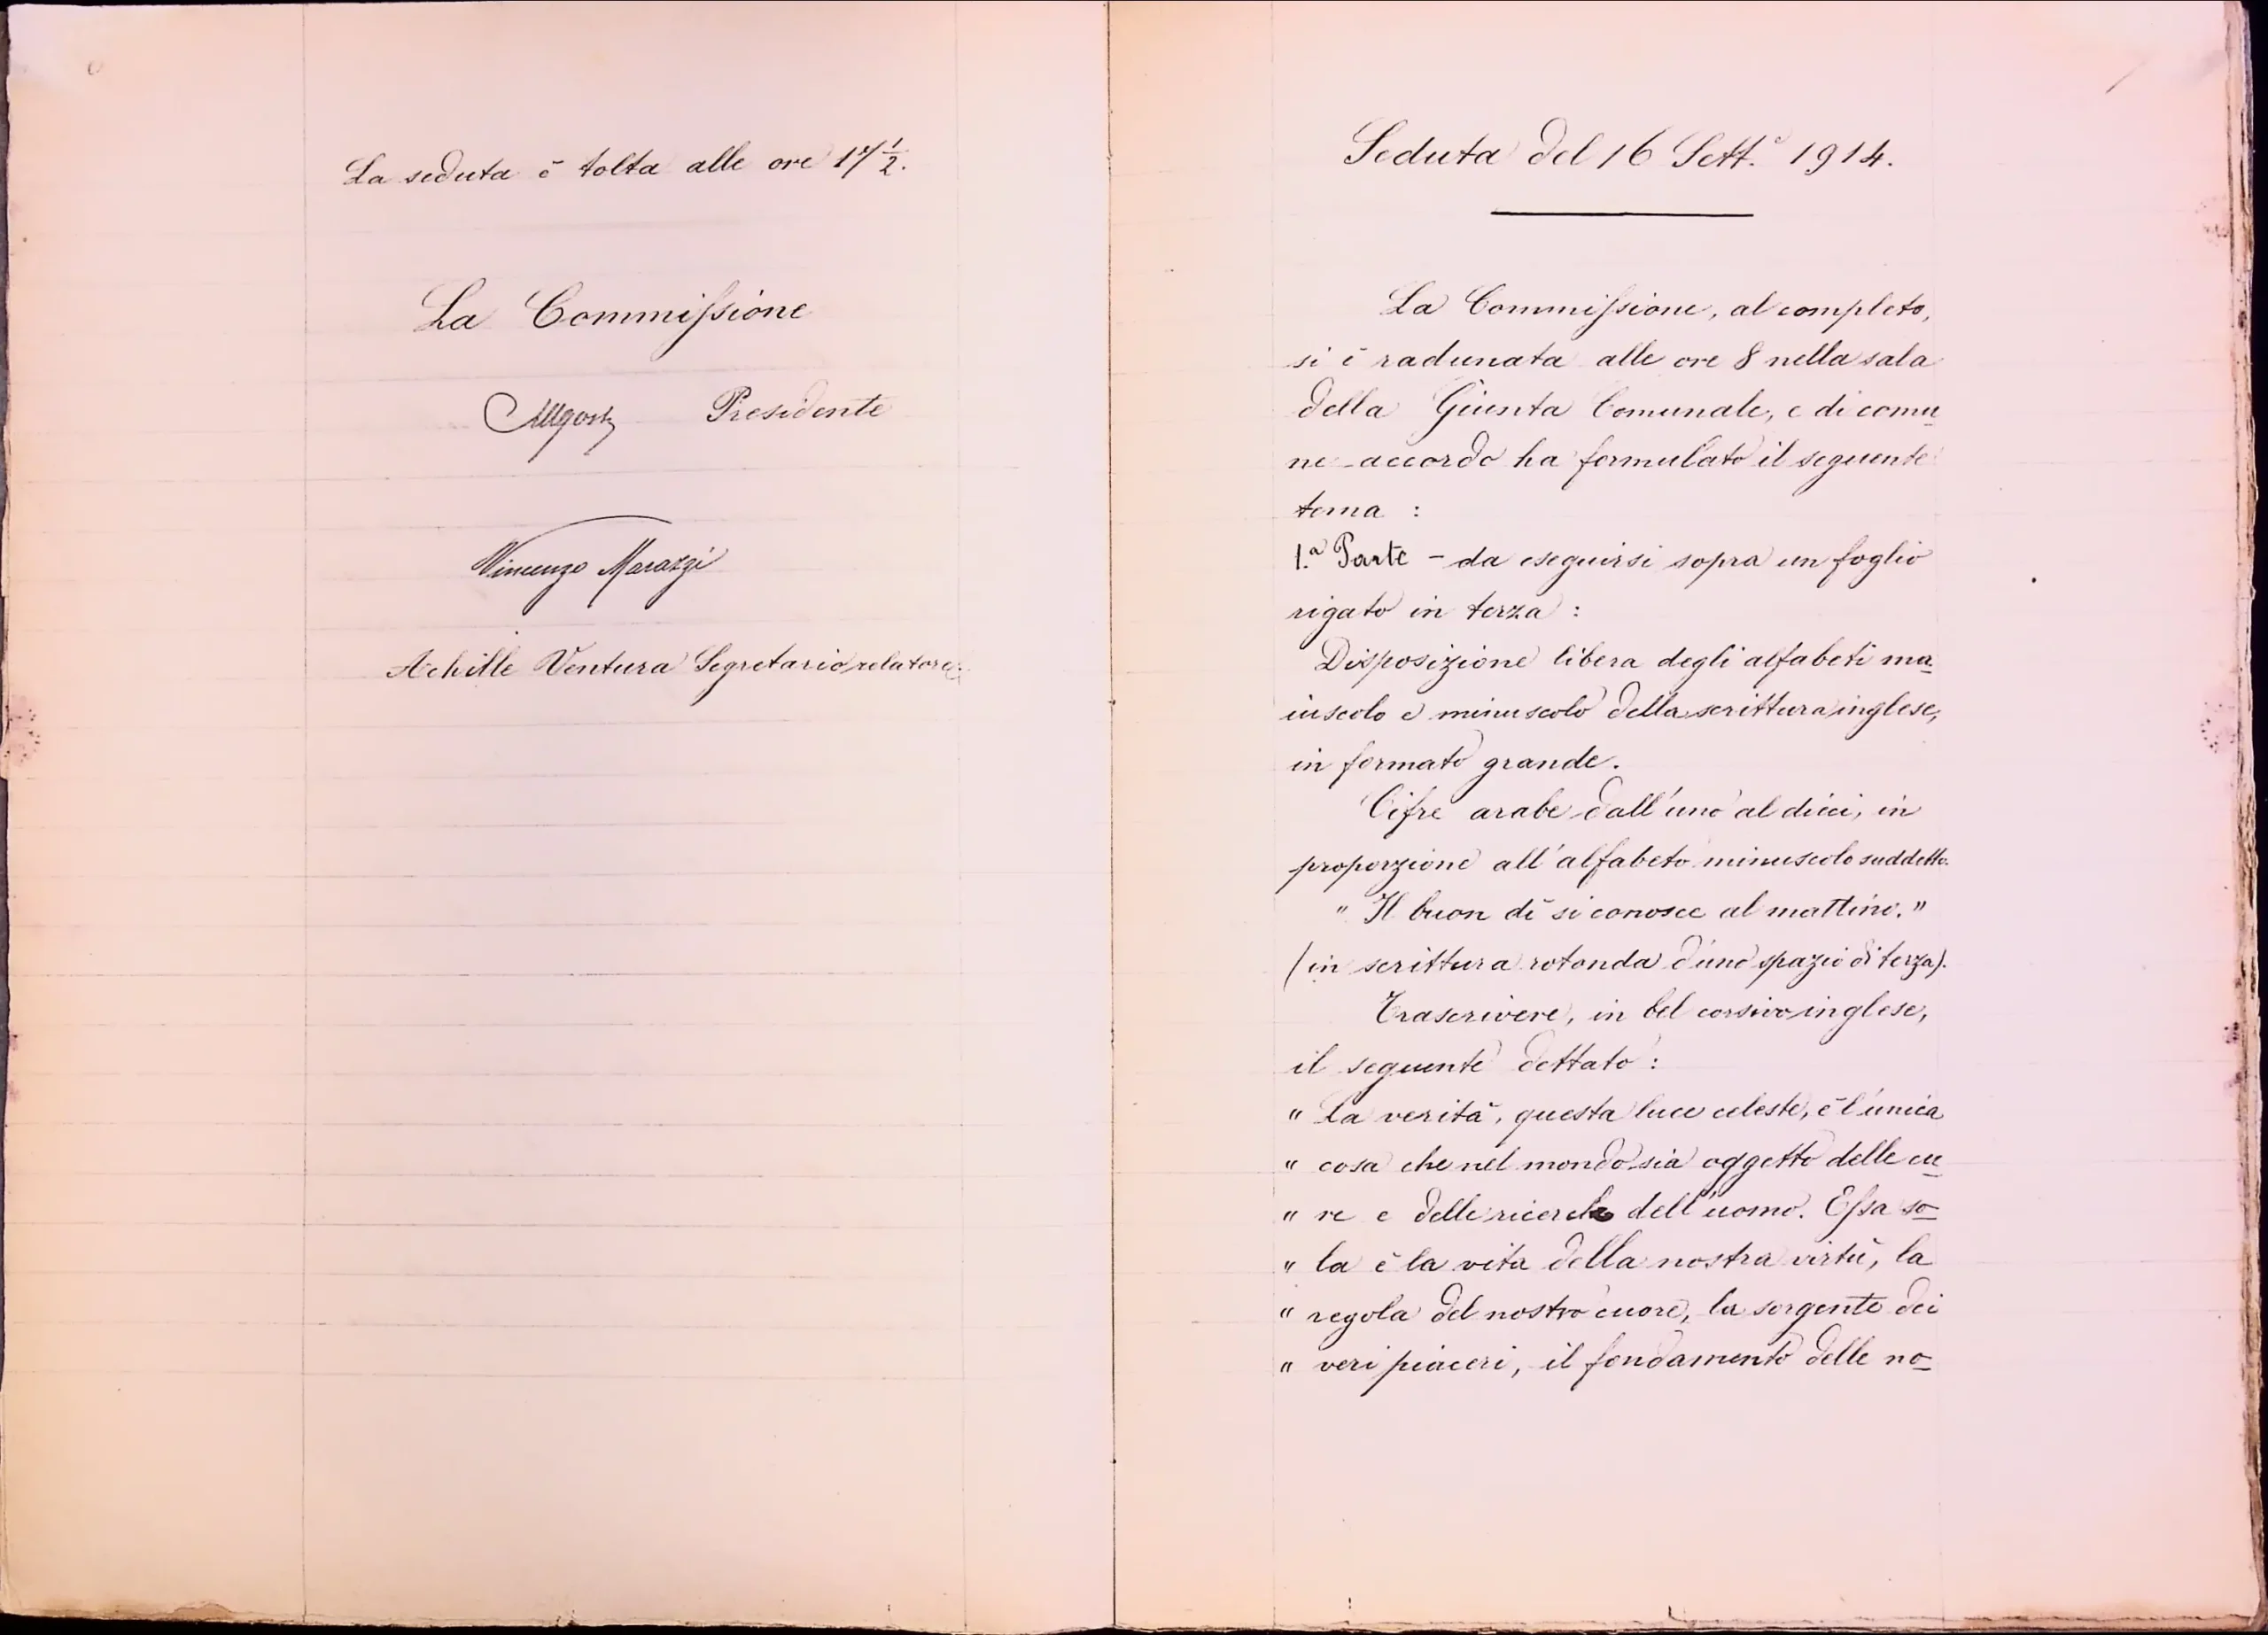 La seduta è tolta alle ore 17 ½.
La Commissione
Presidente
Vincenzo Marazzi
Achille Ventura Segretario relatore.
Seduta del 16 Sett.e 1914.
La Commissione, al completo,
si è radunata alle ore 8 nella sala
della Giunta Comunale, e di comu
ne accordo ha formulato il seguente
tema :
1.a Parte - da eseguirsi sopra un foglio
rigato in terza :
Disposizione libera degli alfabeti ma
iuscolo e minuscolo della scrittura inglese,
in formato grande.
Cifre arabe dall'uno al dieci, in
proporzione all'alfabeto minuscolo suddetto.
" Il buon dì si conosce al mattino. "
(in scrittura rotonda d'uno spazio di terza).
Trascrivere, in bel corsivo inglese,
il seguente dettato :
" La verità, questa luce celeste, è l'unica
" cosa che nel mondo sia oggetto delle cu
" re e delle ricerche dell'uomo. Essa so
" la è la vita della nostra virtù, la
" regola del nostro cuore, la sorgente dei
" veri piaceri, il fondamento delle no